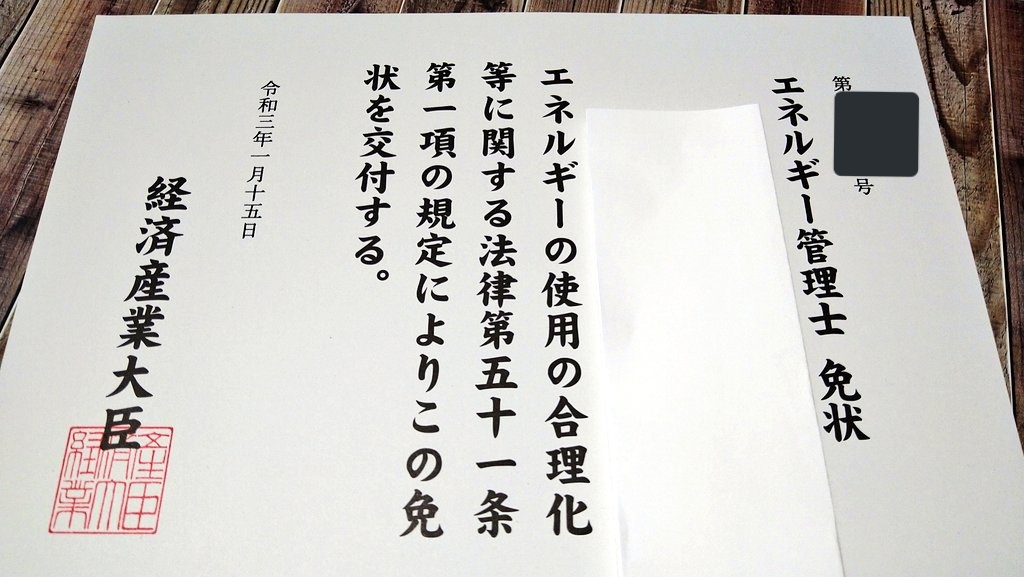 第 号
エネルギー管理士 免状
エネルギーの使用の合理化
等に関する法律第五十一条
第一項の規定によりこの免
状を交付する。
令和三年一月十五日
経済産業大臣